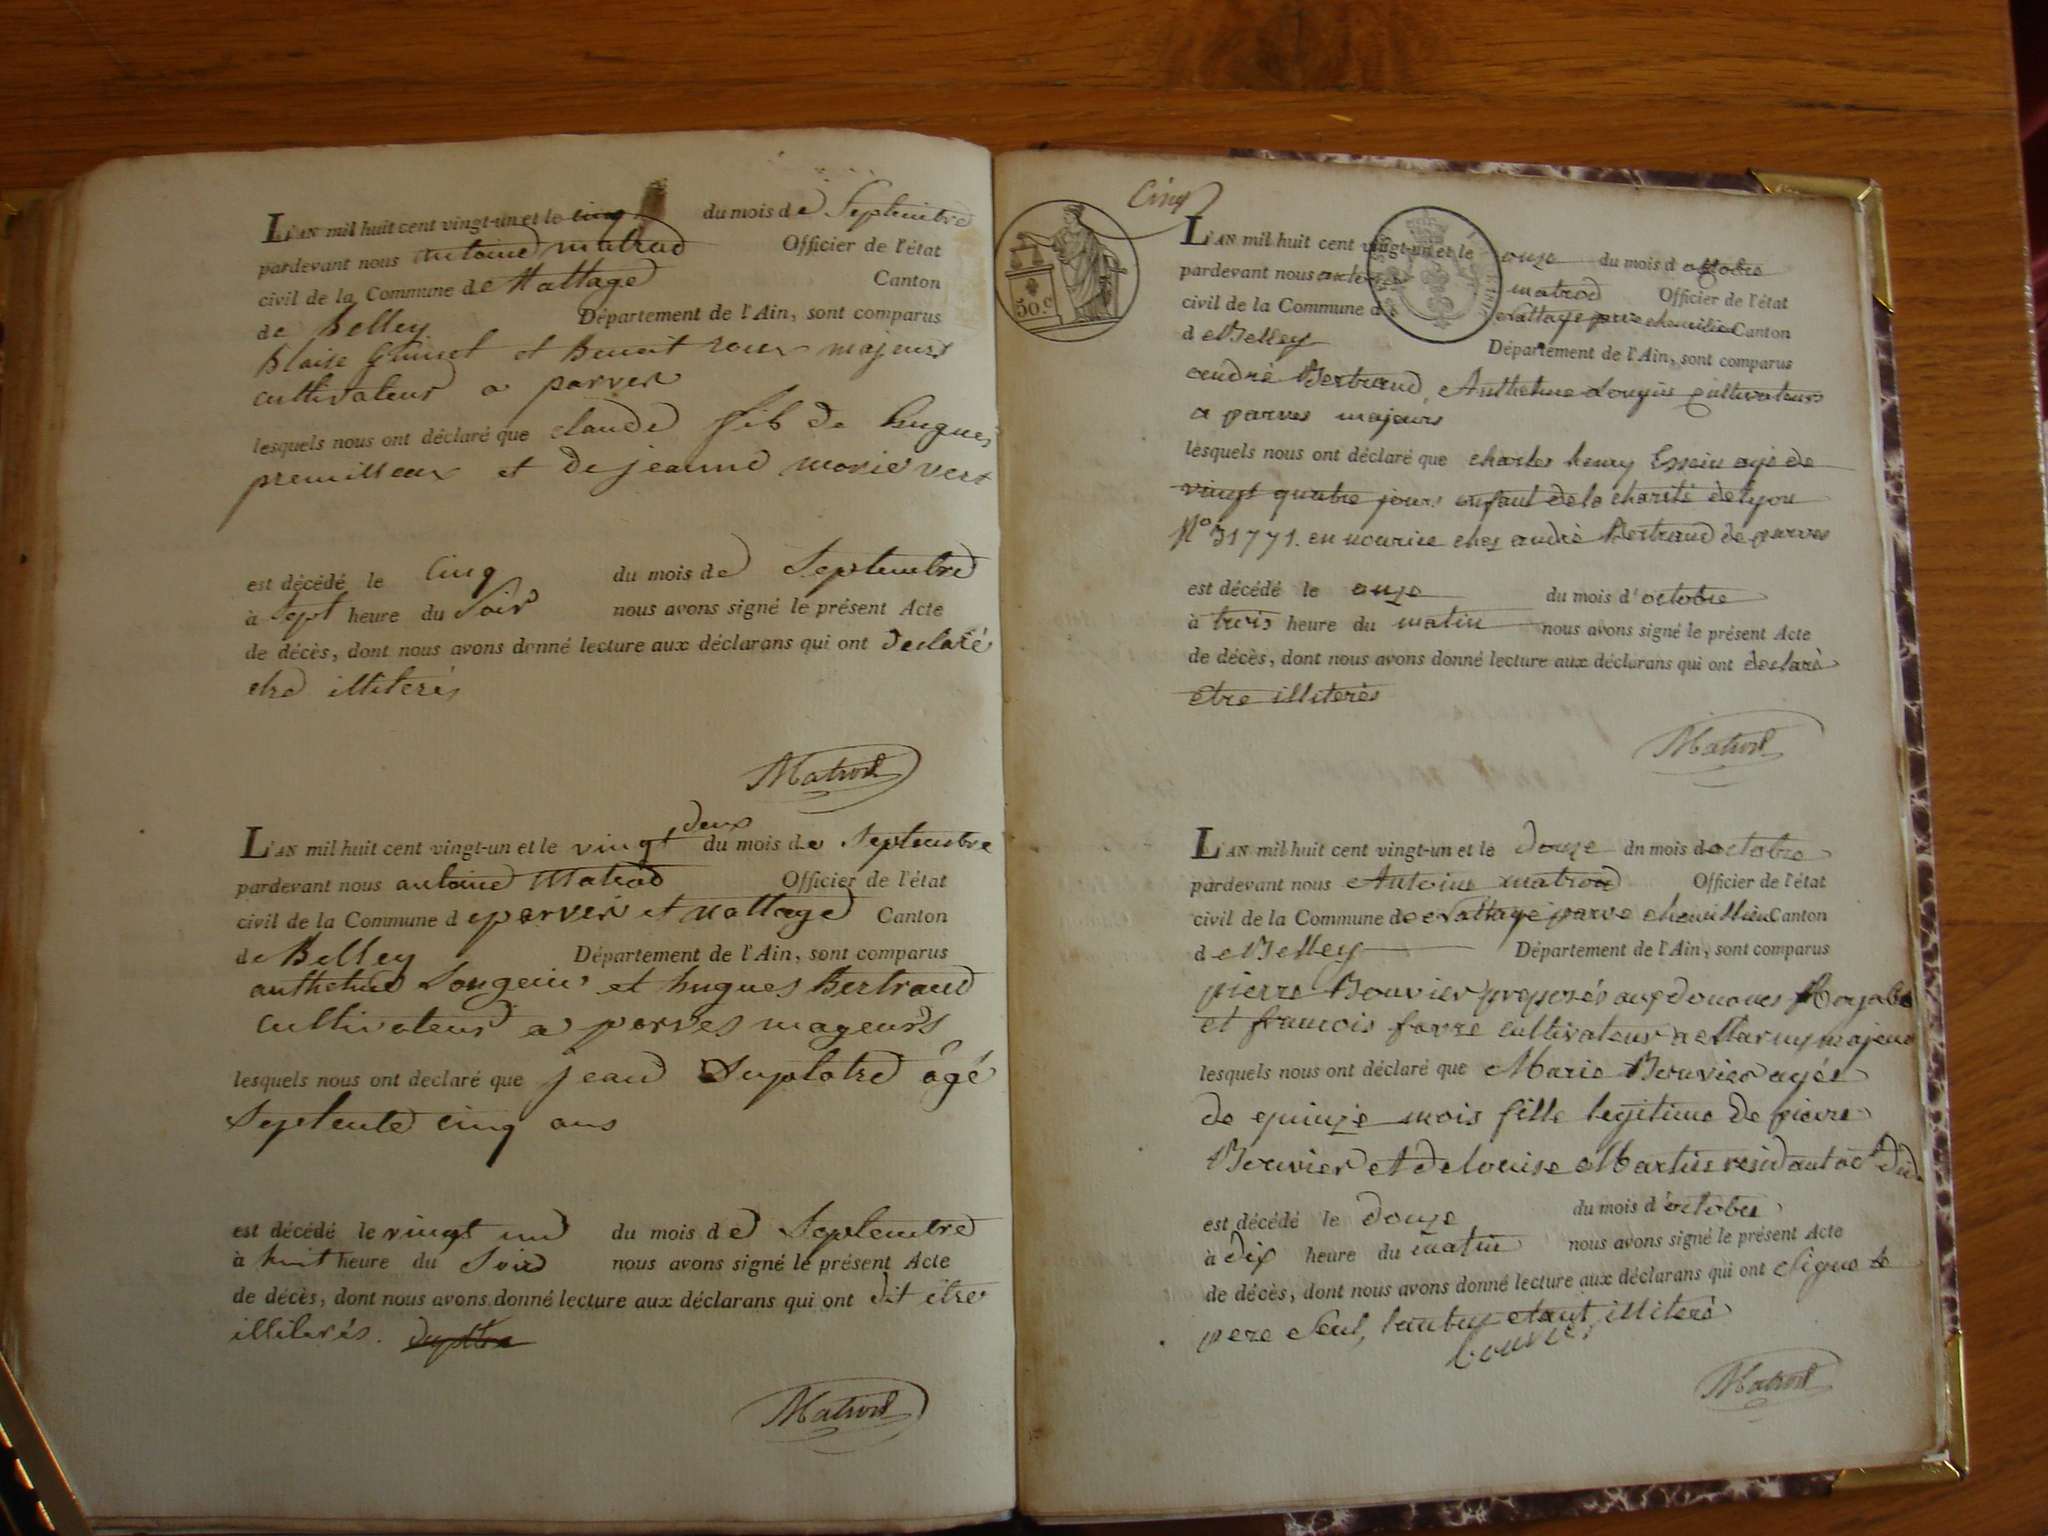 L'AN mil huit cent vingt-un et le cinq du mois de Septembre
pardevant nous antoine matrod Officier de l'état
civil de la Commune de Nattage Canton
de Belley Département de l'Ain, sont comparus
Blaise et Benoit roux majeurs
cultivateur a parves
lesquels nous ont déclaré que claude fils de hugues
premilleux et de jeanne marie vert
est décédé le cinq du mois de Septembre
à sept heure du Soir nous avons signé le présent Acte
de décès, dont nous avons donné lecture aux déclarans qui ont declaré
etre illiterés
Matrod
L'AN mil huit cent vingt-un et le vingt deux du mois de Septembre
pardevant nous antoine Matrod Officier de l'état
civil de la Commune de parves et nattage Canton
de Belley Département de l'Ain, sont comparus
anthelme Longein et hugues Bertrand
cultivateur a parves mageurs
lesquels nous ont declaré que jean Duplatre agé
Septente cinq ans
est décédé le vingt un du mois de Septembre
à huit heure du Soir nous avons signé le présent Acte
de décès, dont nous avons donné lecture aux déclarans qui ont dit etre
illiterés.
Matrod
Cinq
50 c
L'AN mil huit cent vingt-un et le onze du mois d octobre
pardevant nous matrod Officier de l'état
civil de la Commune de Nattage parve chemillieu Canton
de Belley Département de l'Ain, sont comparus
andré Bertrand, Anthelme Longin cultivateurs
a parves majeurs
lesquels nous ont déclaré que charles henry Essein aje de
vingt quatre jours enfant de la charité de Lyon
N° 31771. en nourice ches andrè Bertrand de parves
est décédé le onze du mois d'octobre
à trois heure du matin nous avons signé le présent Acte
de décès, dont nous avons donné lecture aux déclarans qui ont declarè
etre illiterés
Matrod
L'AN mil huit cent vingt-un et le douze du mois d octobre
pardevant nous Antoine matrod Officier de l'état
civil de la Commune de Nattage parve chemillieu Canton
de Belley Département de l'Ain, sont comparus
pierre Bouvier preposés aux douanes Royales
et francois favre cultivateur a majeur
lesquels nous ont déclaré que Marie Bouvier agée
de quinze mois fille legitime de pierre
Bouvier et de louise Martin residant
est décédé le douze du mois d'octobre
à dix heure du matin nous avons signé le présent Acte
de décès, dont nous avons donné lecture aux déclarans qui ont Signe le
pere Seul, lautre etant illiteré
bouvier
Matrod